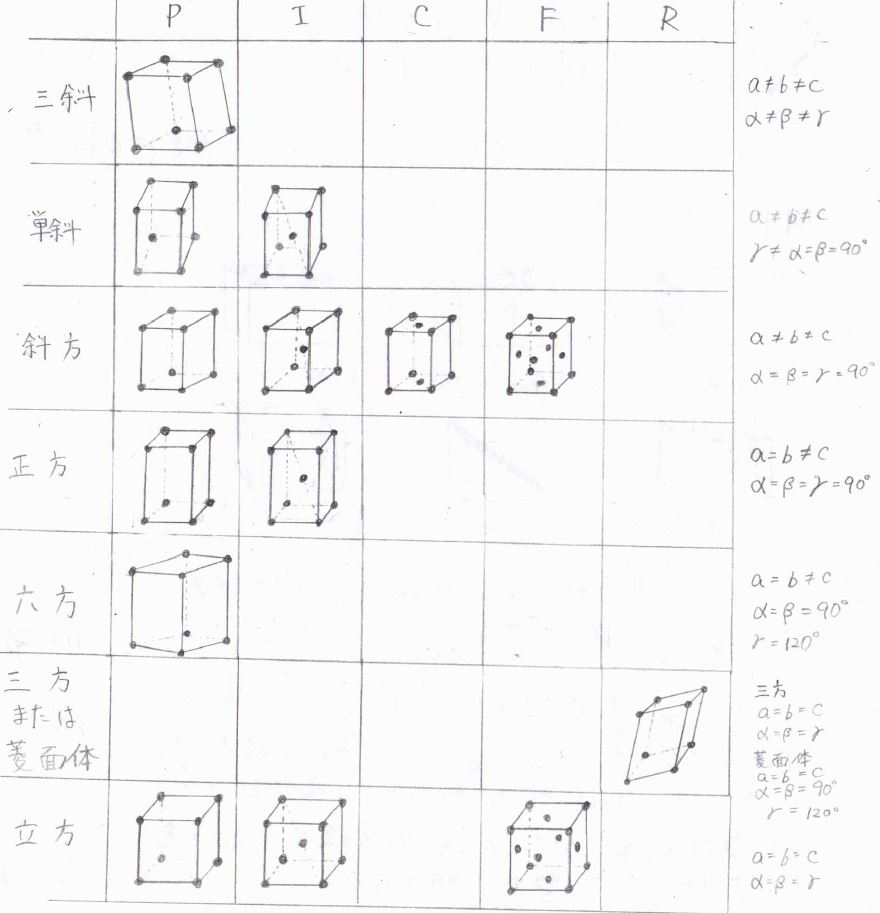 P I C F R
三斜
a≠b≠c
α≠β≠γ
単斜
a≠b≠c
γ≠α=β=90°
斜方
a≠b≠c
α=β=γ=90°
正方
a=b≠c
α=β=γ=90°
六方
a=b≠c
α=β=90°
γ=120°
三方
または
菱面体
三方
a=b=c
α=β=γ
菱面体
a=b=c
α=β=90°
γ=120°
立方
a=b=c
α=β=γ